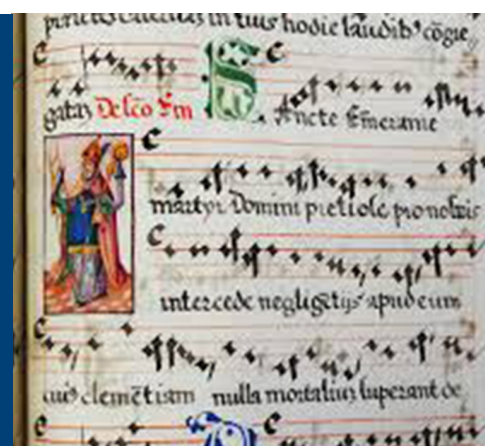 in tuis hodie laudib' cōgre
De sco Em Sancte Emerame
martyr domini pretiose pro nobis
intercede negligētijs apud eum
cui' clemētiam nulla mortaliū superant de